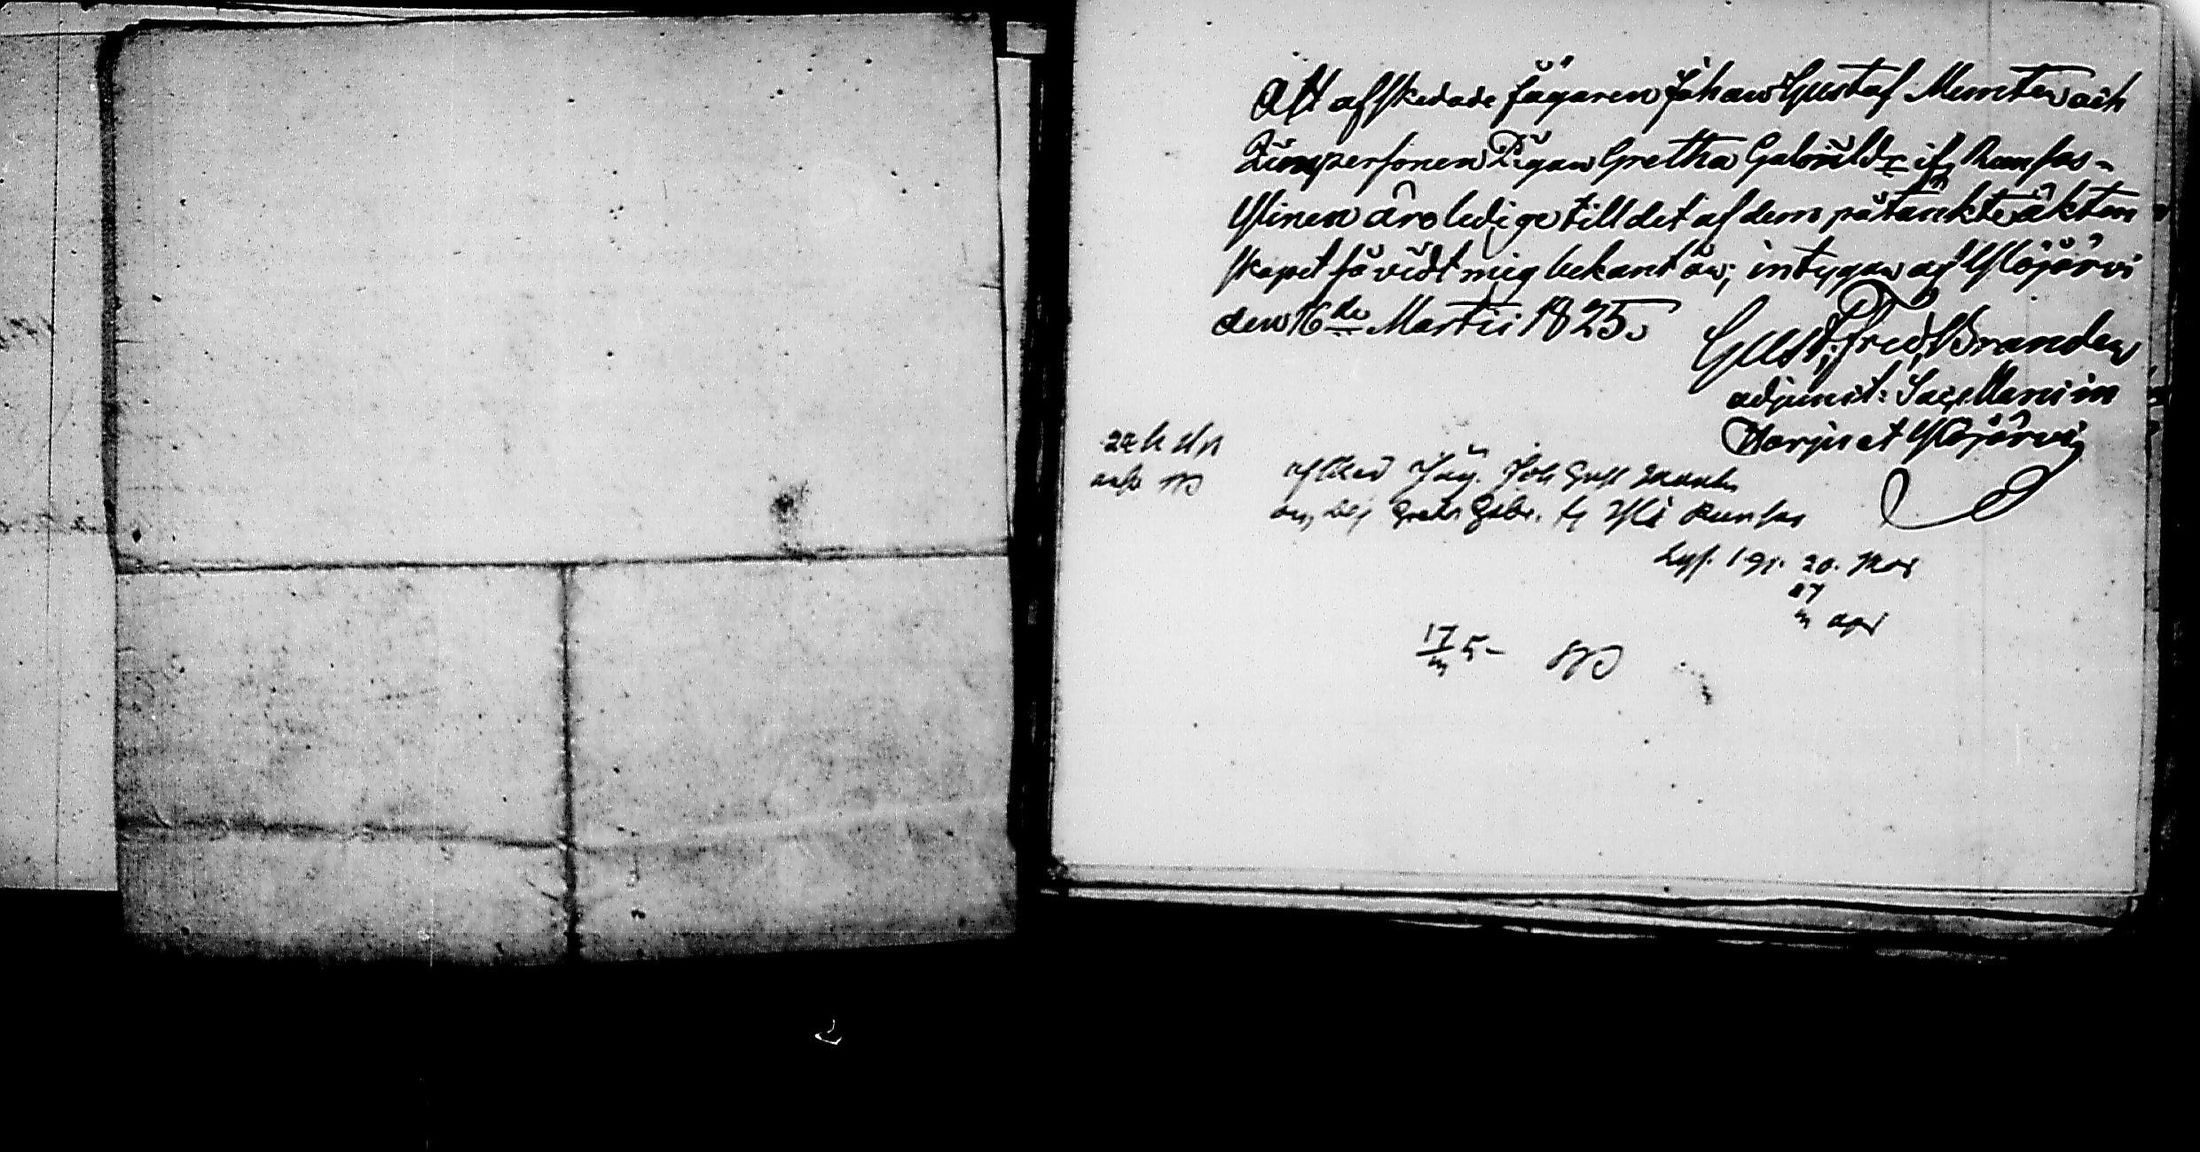 Att afskedade Jägaren Johan Gustaf Munter och
Qvinspersonen Pigan Gretha Gabrielsdr ifr Runsas-
Ylinen äro ledige till det af dem påtänkte äkten
skapet så vidt mig bekant är; intygar af Ylöjärvi
den 16de Martii 1825.
Gust: Fred: Branden
adjunct: Sacellani in
Harju et Ylöjärvi
afsked Jäg. Joh Gust
Greta Gabr. Yli Runsas
Lyst. 1 g. 20. Mar
27
apr
17